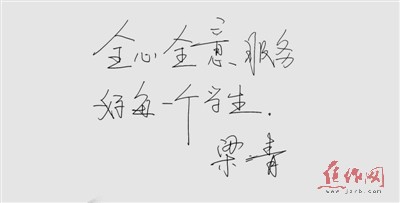 全心全意服务
好每一个学生.
梁青
焦作网
www.jzrb.com